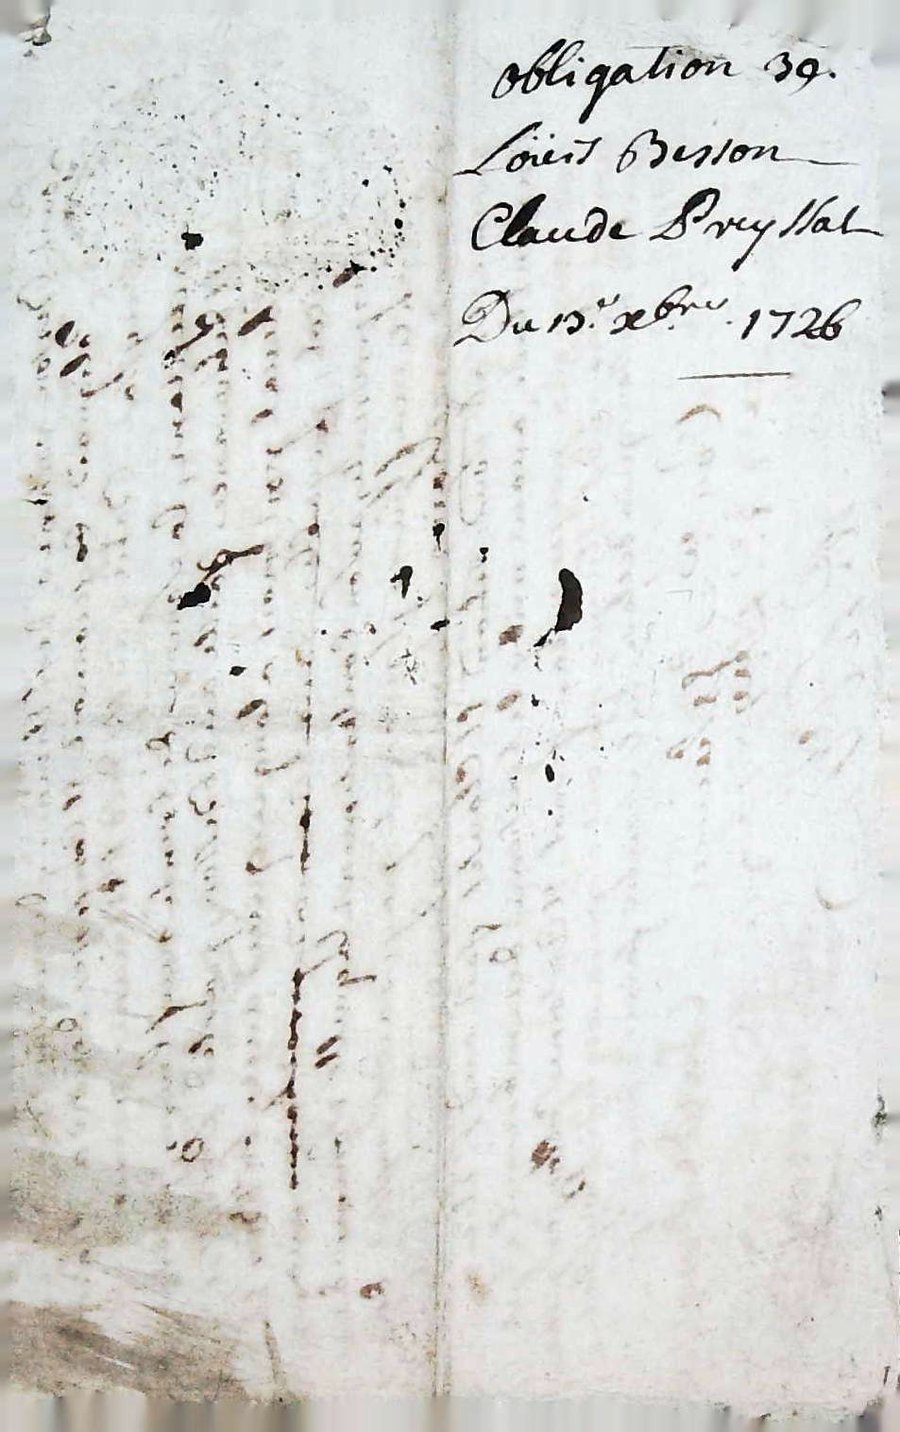 obligation 39.
Loüis Besson
Claude Preyssat
Du 13.e xbre. 1726